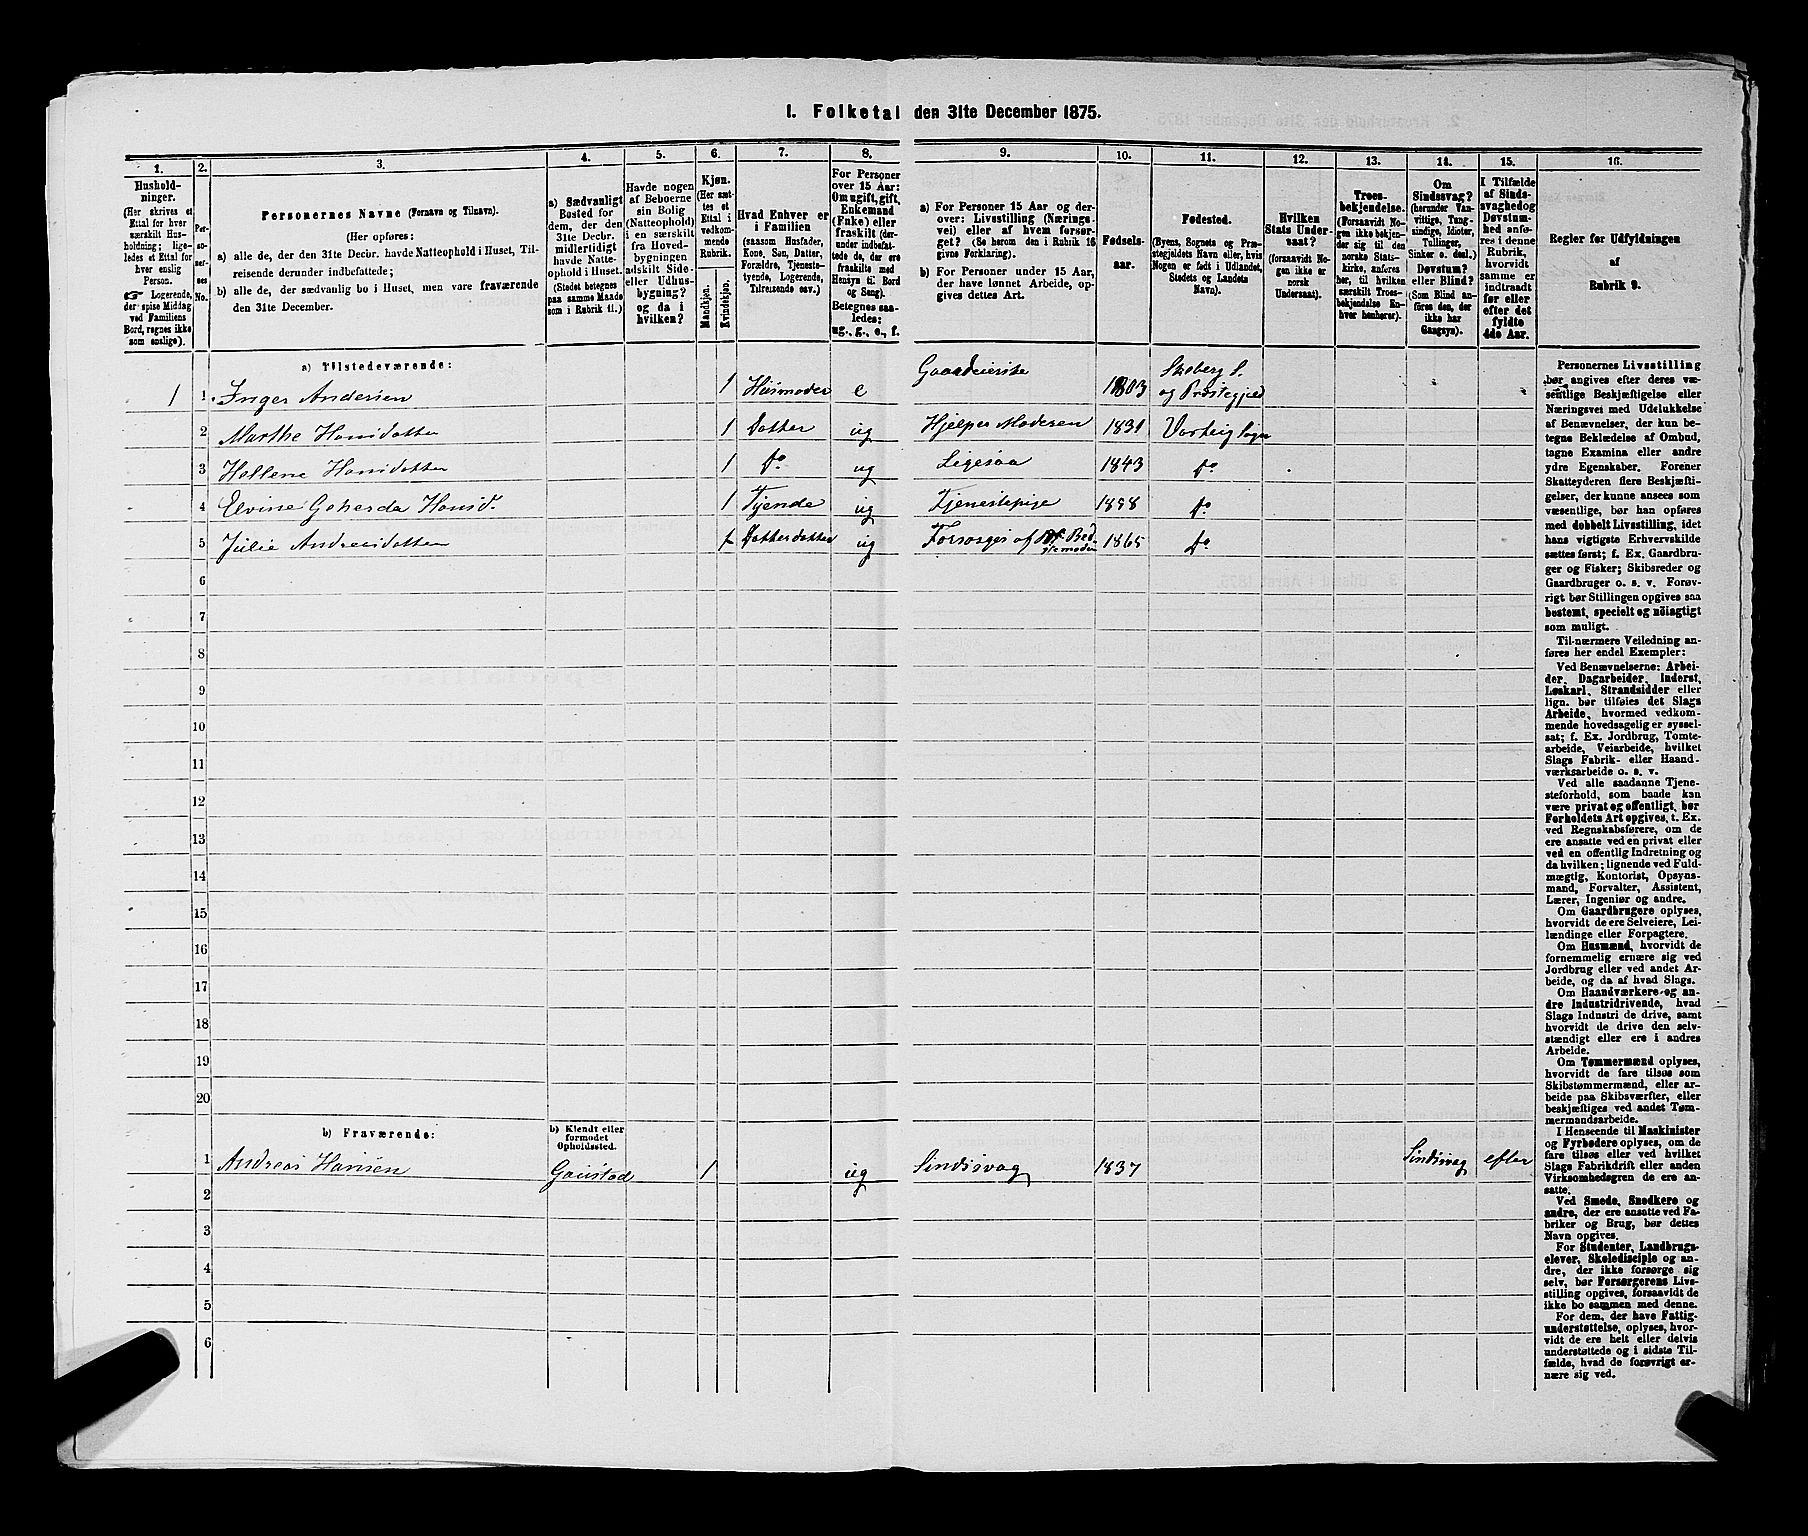 1. Folketal den 31te December 1875.
1.
2.
3.
4.
5.
6.
7.
8.
9.
10.
11.
12.
13.
14.
15.
16.
Hushold-
ninger.
(Her skrives et
Ettal for hver
særskilt Hus-
holdning; lige-
ledes et Ettal for
hver enslig
Person.
☞ Logerende,
der spise Middag
ved Familiens
Bord, regnes ikke
som enslige).
Per-
so-
ner-
nes
No.
Personernes Navne (Fornavn og Tilnavn).
(Her opføres:
a) alle de, der den 31te Decbr. havde Natteophold i Huset, Til-
reisende derunder indbefattede;
b) alle de, der sædvanlig bo i Huset, men vare fraværende
den 31te December.
a) Sædvanligt
Bosted for
dem, der den
31te Decbr.
midlertidigt
havde Natte-
ophold i Huset.
(Stedet betegnes
paa samme Maade
som i Rubrik 11.)
Havde nogen
af Beboerne
sin Bolig
(Natteophold)
i en særskilt
fra Hoved-
bygningen
adskilt Side-
eller Udhus-
bygning?
og da i
hvilken?
Kjøn.
(Her sæt-
tes et
Ettal i
vedkom-
mende
Rubrik.
Mandkjøn.
Kvindekjøn.
Hvad Enhver er
i Familien
(saasom Husfader,
Kone, Søn, Datter,
Forældre, Tjeneste-
tyende, Logerende,
Tilreisende osv.)
For Personer
over 15 Aar:
Om ugift, gift,
Enkemand
(Enke) eller
fraskilt (der-
under indbefat-
tede de, der ere
fraskilte med
Hensyn til Bord
og Seng).
Betegnes saa-
ledes:
ug., g., e., f.
a) For Personer 15 Aar og der-
over: Livsstilling (Nærings-
vei) eller af hvem forsør-
get? (Se herom den i Rubrik 16
givne Forklaring).
b) For Personer under 15 Aar,
der have lønnet Arbeide, op-
gives dettes Art.
Fødsels-
aar.
Fødested.
(Byens, Sognets og Præ-
stegjeldets Navn eller, hvis
Nogen er født i Udlandet,
Stedets og Landets
Navn).
Hvilken
Stats Under-
saat?
(forsaavidt No-
gen ikke er
norsk
Undersaat).
Troes-
bekjendelse.
(Forsaavidt No-
gen ikke bekjen-
der sig til den
norske Stats-
kirke, anføres
her, til hvilken
særskilt Troes-
bekjendelse En-
hver henhører).
Om
Sindssvag?
(herunder Van-
vittige, Tung-
sindige, Idioter,
Tullinger,
Sinker o. desl.)
Døvstum?
eller Blind?
(Som Blind an-
føres den, der
ikke har
Gangsyn).
I Tilfælde
af Sinds-
svaghed og
Døvstum-
hed anfø-
res i denne
Rubrik,
hvorvidt
samme er
indtraadt
før eller
efter det
fyldte
4de Aar.
Regler for Udfyldningen
af
Rubrik 9.
a) Tilstedeværende:
1 1 Inger Andersen 1 Husmoder e Gaardeierske 1803 Skeberg S.
og Præstegjeld
2 Marthe Hansdatter 1 Datter ug Hjelper Moderen 1831 Varteig Sogn
3 Hellene Hansdatter 1 do ug Ligesaa 1843 do
4 Elvine Hansd. 1 Tjende ug Tjenestepige 1858 do
5 Julie Andreasdatter 1 Datterdatter ug Forsørges af Bed-
stemoder 1865 do
6
7
8
9
10
11
12
13
14
15
16
17
18
19
20
b) Fraværende:
b) Kjendt eller
formodet
Opholdssted.
1 Andreas Hansen Gaustad 1 ug Sindssvag 1837 Sindssvag efter
2
3
4
5
6
Personernes Livsstilling
bør angives efter deres væ-
sentlige Beskjæftigelse eller
Næringsvei med Udelukkelse
af Benævnelser, der kun be-
tegne Beklædelse af Ombud,
tagne Examina eller andre
ydre Egenskaber. Forener
Skatteyderen flere Beskjæfti-
gelser, der kunne ansees som
væsentlige, bør han opføres
med dobbelt Livsstilling, idet
hans vigtigste Erhvervskilde
sættes først; f. Ex. Gaardbru-
ger og Fisker; Skibsreder og
Gaardbruger o. s. v. Forøv-
rigt bør Stillingen opgives saa
bestemt, specielt og nöiagtigt
som muligt.
Til nærmere Veiledning an-
føres her endel Exempler:
Ved Benævnelserne: Arbei-
der, Dagarbeider, Inderst,
Løskarl, Strandsidder eller
lign. bør tilføies det Slags
Arbeide, hvormed vedkom-
mende hovedsagelig er syssel-
sat; f. Ex. Jordbrug, Tomte-
arbeide, Veiarbeide, hvilket
Slags Fabrik- eller Haand-
værksarbeide o. s. v.
Ved alle saadanne Tjene-
steforhold, som baade kan
være privat og offentligt, bør
Forholdets Art opgives, t. Ex.
ved Regnskabsførere, om de
ere ansatte ved en privat eller
ved en offentlig Indretning og
da hvilken; lignende ved Fuld-
mægtig, Kontorist, Opsyns-
mand, Forvalter, Assistent,
Lærer, Ingeniør og andre.
Om Gaardbrugere oplyses,
hvorvidt de ere Selveiere, Lei-
lændinge eller Forpagtere.
Om Husmænd, hvorvidt de
fornemmelig ernære sig ved
Jordbrug eller ved andet Ar-
beide, og da af hvad Slags.
Om Haandværkere og an-
dre Industridrivende, hvad
Slags Industri de drive, samt
hvorvidt de drive den selv-
stændigt eller ere i andres
Arbeide.
Om Tømmermænd oplyses,
hvorvidt de fare tilsøs som
Skibstømmermænd, eller ar-
beide paa Skibsværfter, eller
beskjæftiges ved andet Tøm-
mermandsarbeide.
I Henseende til Maskinister
og Fyrbødere oplyses, om de
fare tilsøs eller ved hvilket
Slags Fabrikdrift eller anden
Virksomhedsgren de ere an-
satte.
Ved Smede, Snedkere og
andre, der ere ansatte ved Fa-
briker og Brug, bør dettes
Navn opgives.
For Studenter, Landbrugs-
elever, Skoledisciple og an-
dre, der ikke forsørge sig
selv, bør Forsørgerens Livs-
stilling opgives, forsaavidt de
ikke bo sammen med denne.
For dem, der have Fattig-
understøttelse, oplyses, hvor-
vidt de ere helt eller delvis
understøttede og i sidste Til-
fælde, hvad de forøvrigt er-
nære sig ved.